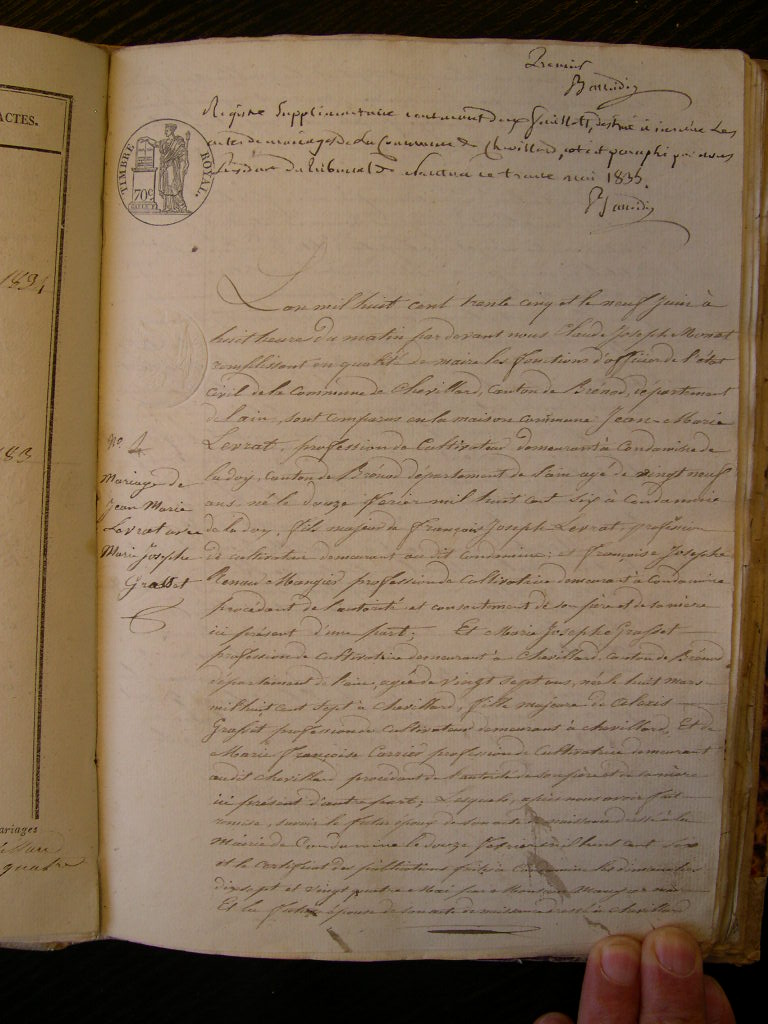 ACTES.
1834
183
ariages
quatre
Premier
TIMBRE ROYAL.
70c
Registre Supplémentaire contenant deux feuillets, destiné à inscrire Les
actes de mariages de La Commune de Chevillard, coté et paraphé par nous
Président du Tribunal de Nantua ce treize mai 1835.
L'an mil huit cent trente cinq et le neuf Juin à
huit heures du matin par devant nous Claude Joseph Monat
remplissant en qualité de maire les fonctions d'officier de l'état
civil de la Commune de Chevillard, Canton de Brénod, département
de l'ain, sont comparus en la maison commune Jean-Marie
Levrat, profession de Cultivateur demeurant à Condamine de
la doy, Canton de Brénod département de l'ain agé de vingt neuf
ans, né le douze février mil huit cent six à Condamine
de la doy, fils majeur de François Joseph Levrat, profession
de cultivateur demeurant au dit Condamine; et Françoise Josephe
profession de Cultivatrice demeurant à Condamine
procédant de l'autorité et consentement de son père et de sa mère
ici présent d'une part; Et Marie Josephe Grasset
profession de cultivatrice demeurant à Chevillard, canton de Brénod
département de l'ain, agée de vingt sept ans, née le huit mars
mil huit cent sept à Chevillard, fille majeure de
Grasset profession de Cultivateur demeurant à Chevillard, Et de
Marie Françoise Carrier profession de Cultivatrice demeurant
audit Chevillard procédant de l'autorité de son père et de sa mère
ici présent d'autre part; Lesquels, après nous avoir fait
remise, savoir le futur époux de son acte de naissance dressé à la
Mairie de Condamine le douze février mil huit cent six
et le certificat des publications faites à Condamine les dimanches
dix sept et vingt quatre Mai par Monsieur
Et la future épouse de son acte de naissance dressé à Chevillard
No 1
Mariage de
Jean Marie
Levrat avec
Marie Josephe
Grasset